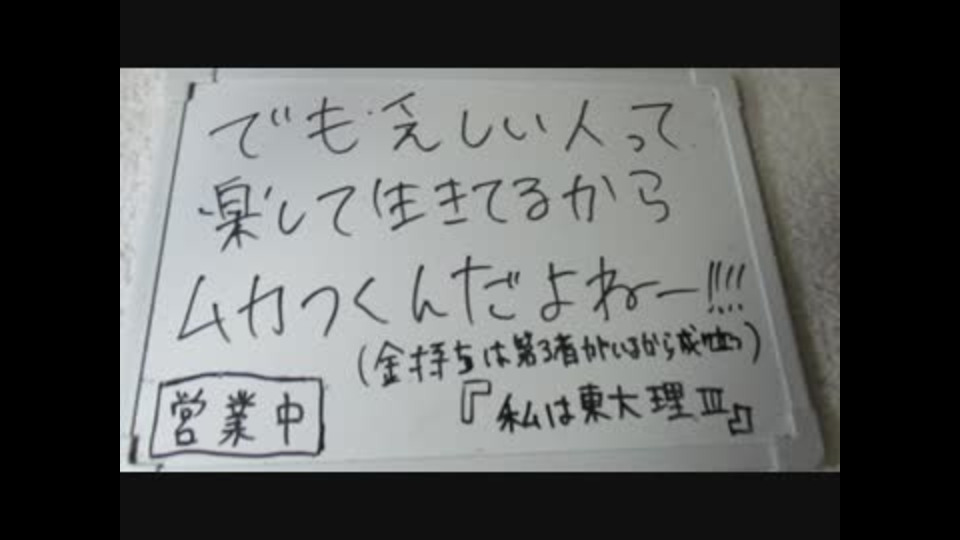 でも乏しい人って
楽して生きてるから
ムカつくんだよねー!!!!
(金持ちは第3者がいるから成り立つ)
『私は東大理Ⅲ』
営業中